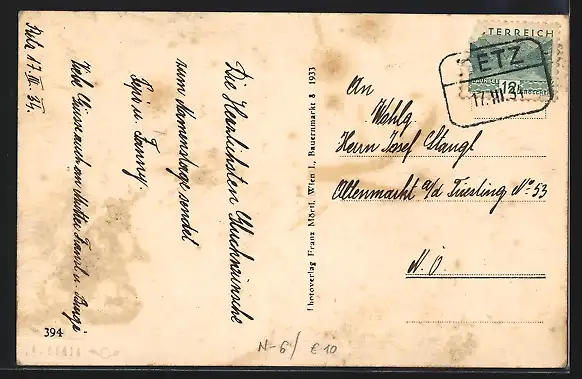 Retz 17.III.34.
Die Herzlichsten Glückwünsche
zum Namenstage sendet
Pepi u. Fanny
Viele Grüsse auch an Mutter Franzl u.
394
Photoverlag Franz Mörtl, Wien I., Bauernmarkt 8 1933
TERREICH
ETZ
17.III.34
12
An
Wohlg.
Herrn Josef Stangl
Altenmarkt a/d Triesting No 53
N. Ö.
N-6/ € 10